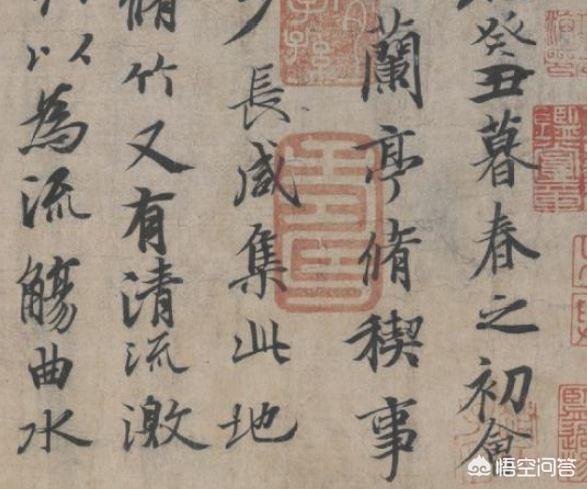 癸丑暮春之初會
蘭亭脩稧事
長咸集此地
脩竹又有清流激
以為流觴曲水
悟空问答